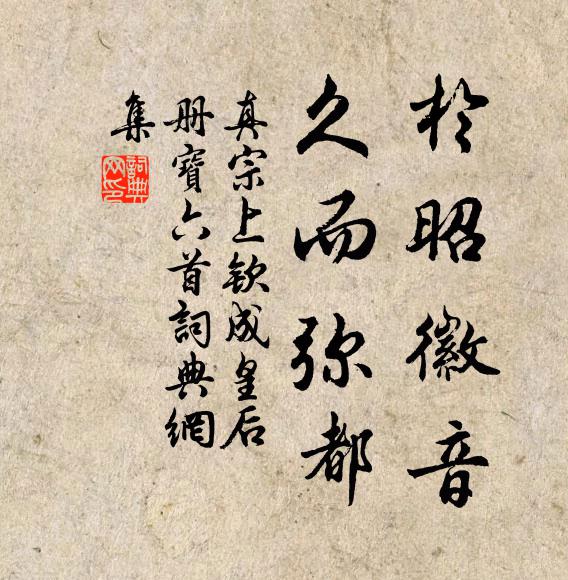 於昭徽音
久而弥都
真宗上钦成皇后
册寶六首詞典網
集
詞典
网印